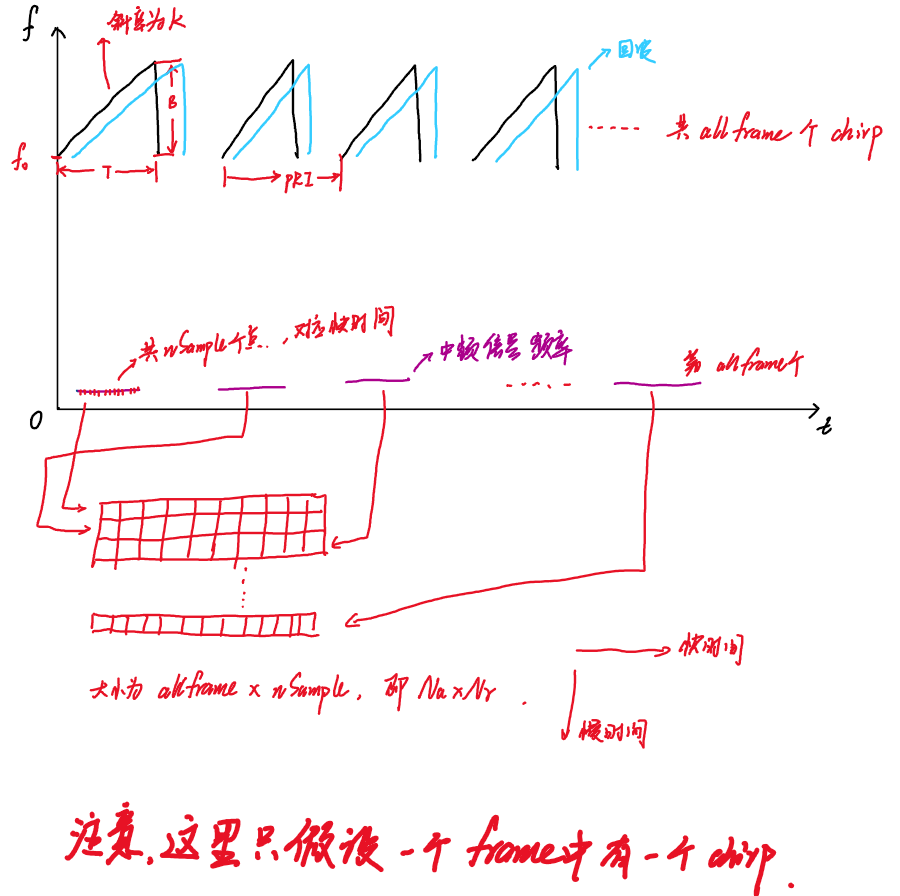 f
斜率为k
回波
B
共 allframe 个 chirp
f₀
T
PRI
共nSample个点，对应快时间
中频信号频率
第 allframe个
0
t
快时间
大小为 allframe × nSample，即 Na×Nr．
慢时间
注意，这里只假设一个frame中有一个chirp．